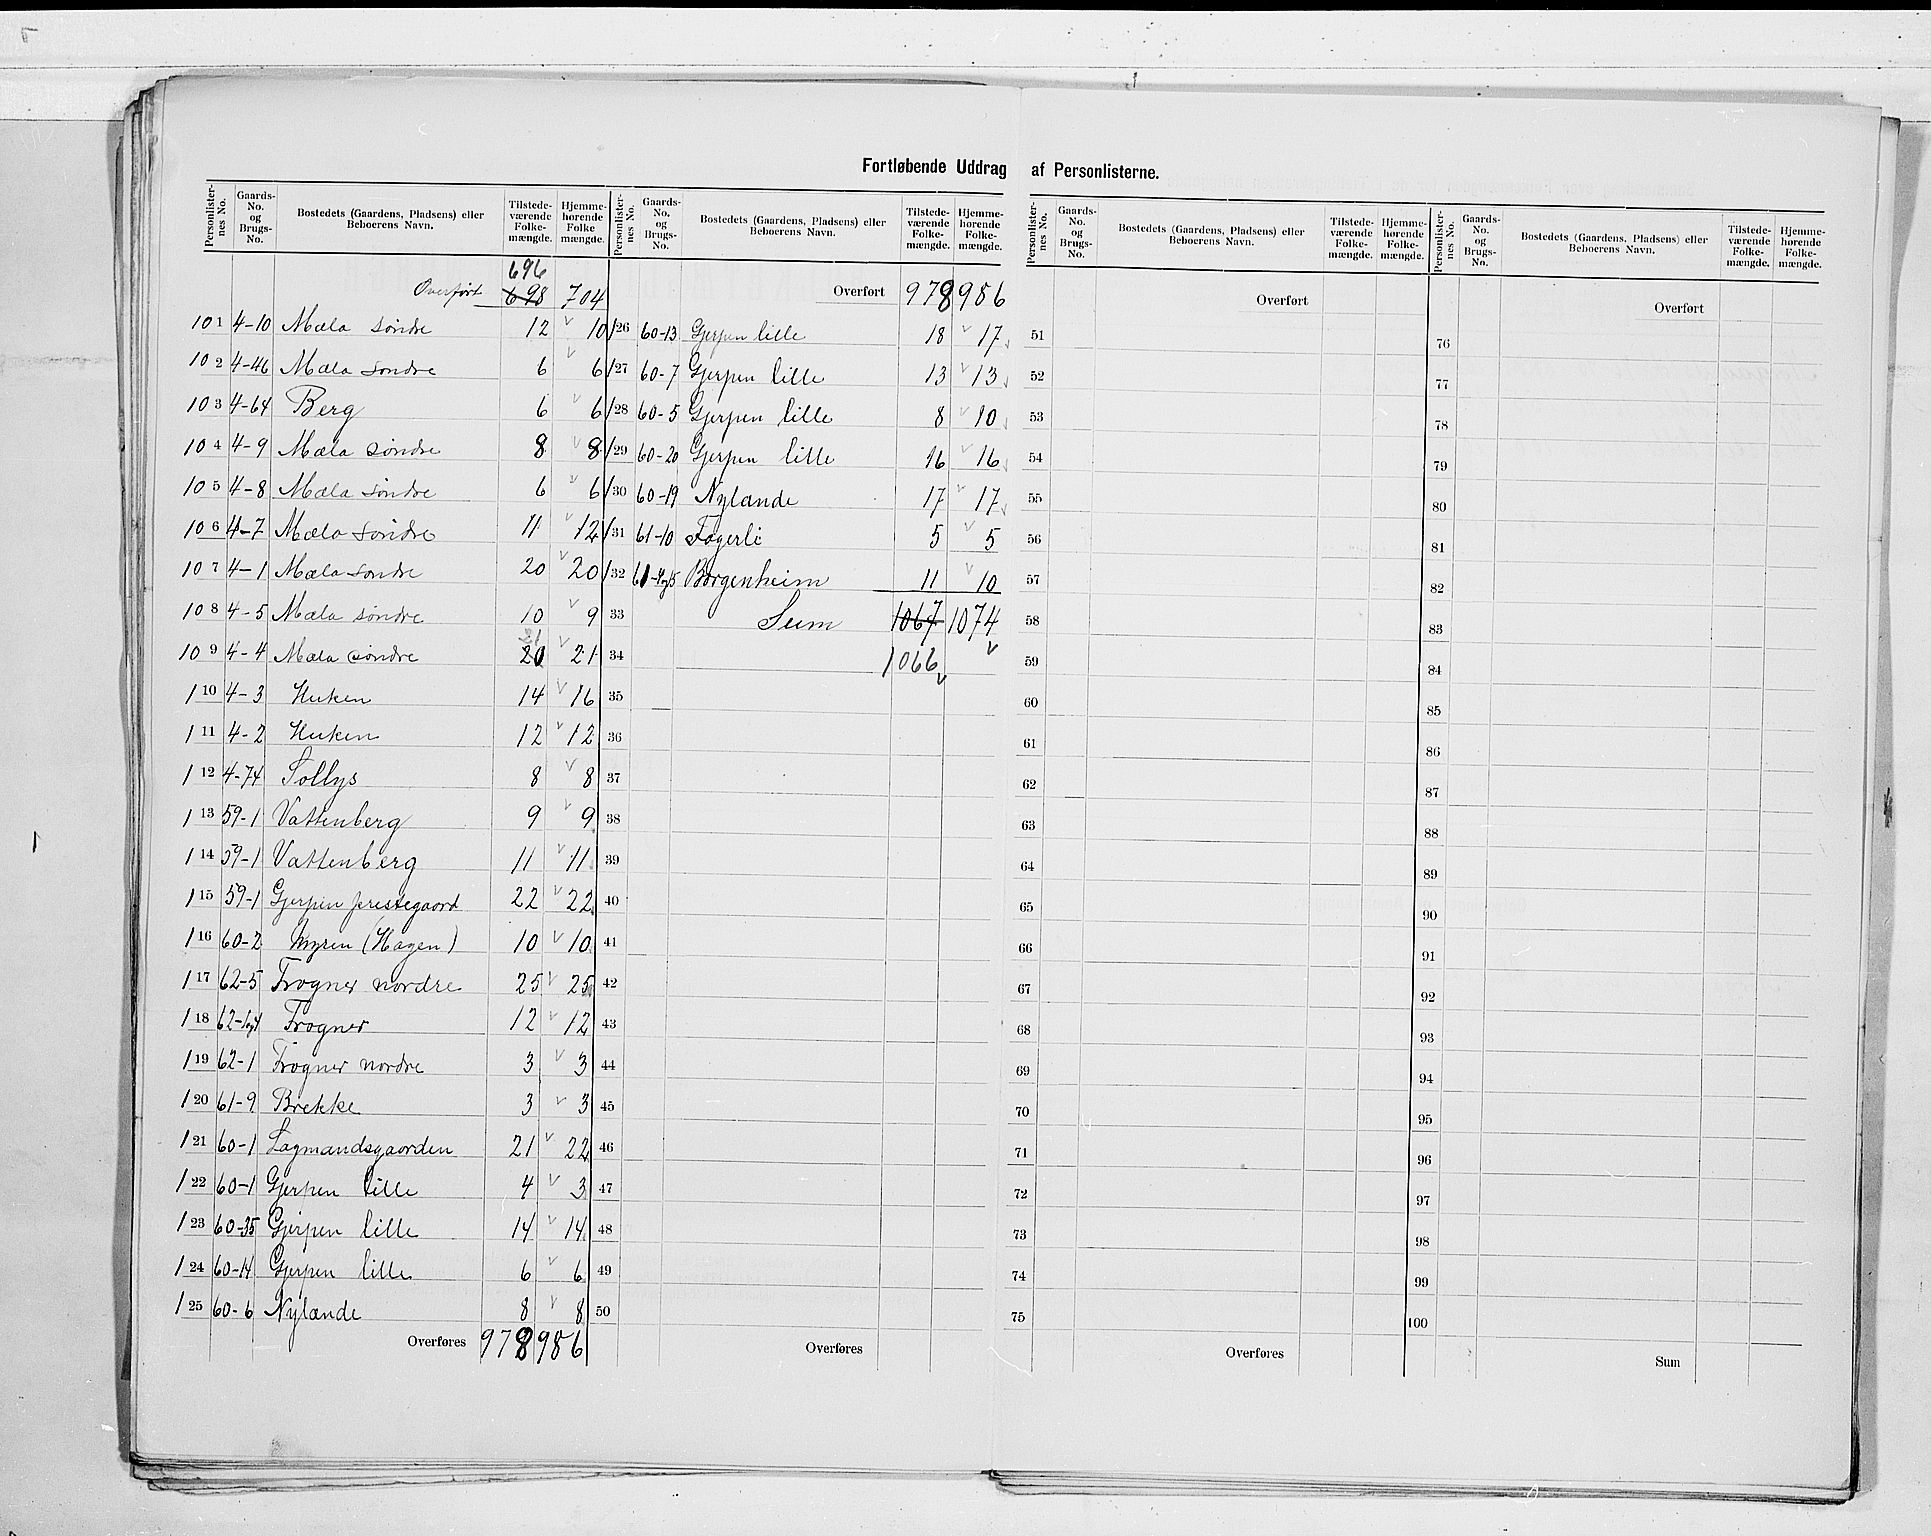 Fortløbende Uddrag af Personlisterne.
Personlister-nes No. | Gaards-No. og Brugs-No. | Bostedets (Gaardens, Pladsens) eller Beboerens Navn. | Tilstede-værende Folke-mængde. | Hjemme-hørende Folke mængde.
696
Overført 698 704
101 4-10 Mæla søndre 12 v 10
102 4-46 Mæla søndre 6 v 6
103 4-64 Berg 6 v 6
104 4-9 Mæla søndre 8 v 8
105 4-8 Mæla søndre 6 v 6
106 4-7 Mæla søndre 11 v 12
107 4-1 Mæla søndre 20 v 20
108 4-5 Mæla søndre 10 v 9
21
109 4-4 Mæla søndre 20 v 21
110 4-3 Huken 14 v 16
111 4-2 Huken 12 v 12
112 4-74 Sollys 8 v 8
113 59-1 Vattenberg 9 v 9
114 59-1 Vattenberg 11 v 11
115 59-1 Gjerpen prestegaard 22 v 22
116 60-2 Myren (Hagen) 10 v 10
117 62-5 Frogner nordre 25 v 25
118 62-1og4 Frogner 12 v 12
119 62-1 Frogner nordre 3 v 3
120 61-9 Brekke 3 v 3
121 60-1 Lagmandsgaarden 21 v 22
122 60-1 Gjerpen lille 4 v 3
123 60-35 Gjerpen lille 14 v 14
124 60-14 Gjerpen lille 6 v 6
125 60-6 Nylænde 8 v 8
Overføres 978 986
Personlister-nes No. | Gaards-No. og Brugs-No. | Bostedets (Gaardens, Pladsens) eller Beboerens Navn. | Tilstede-værende Folke-mængde. | Hjemme-hørende Folke-mængde.
Overført 978 986
126 60-13 Gjerpen lille 18 v 17
127 60-7 Gjerpen lille 13 v 13
128 60-5 Gjerpen lille 8 v 10
129 60-20 Gjerpen lille 16 v 16
130 60-19 Nylænde 17 v 17
131 61-10 Fagerli 5 v 5
132 Borgenheim 11 v 10
33 Sum 1067 1074
34 1066 v v
35
36
37
38
39
40
41
42
43
44
45
46
47
48
49
50
Overføres
Personlister-nes No. | Gaards-No. og Brugs-No. | Bostedets (Gaardens, Pladsens) eller Beboerens Navn. | Tilstede-værende Folke-mængde. | Hjemme-hørende Folke-mængde.
Overført
51
52
53
54
55
56
57
58
59
60
61
62
63
64
65
66
67
68
69
70
71
72
73
74
75
Overføres
Personlister-nes No. | Gaards-No. og Brugs-No. | Bostedets (Gaardens, Pladsens) eller Beboerens Navn. | Tilstede-værende Folke-mængde. | Hjemme-hørende Folke-mængde.
Overført
76
77
78
79
80
81
82
83
84
85
86
87
88
89
90
91
92
93
94
95
96
97
98
99
100
Sum